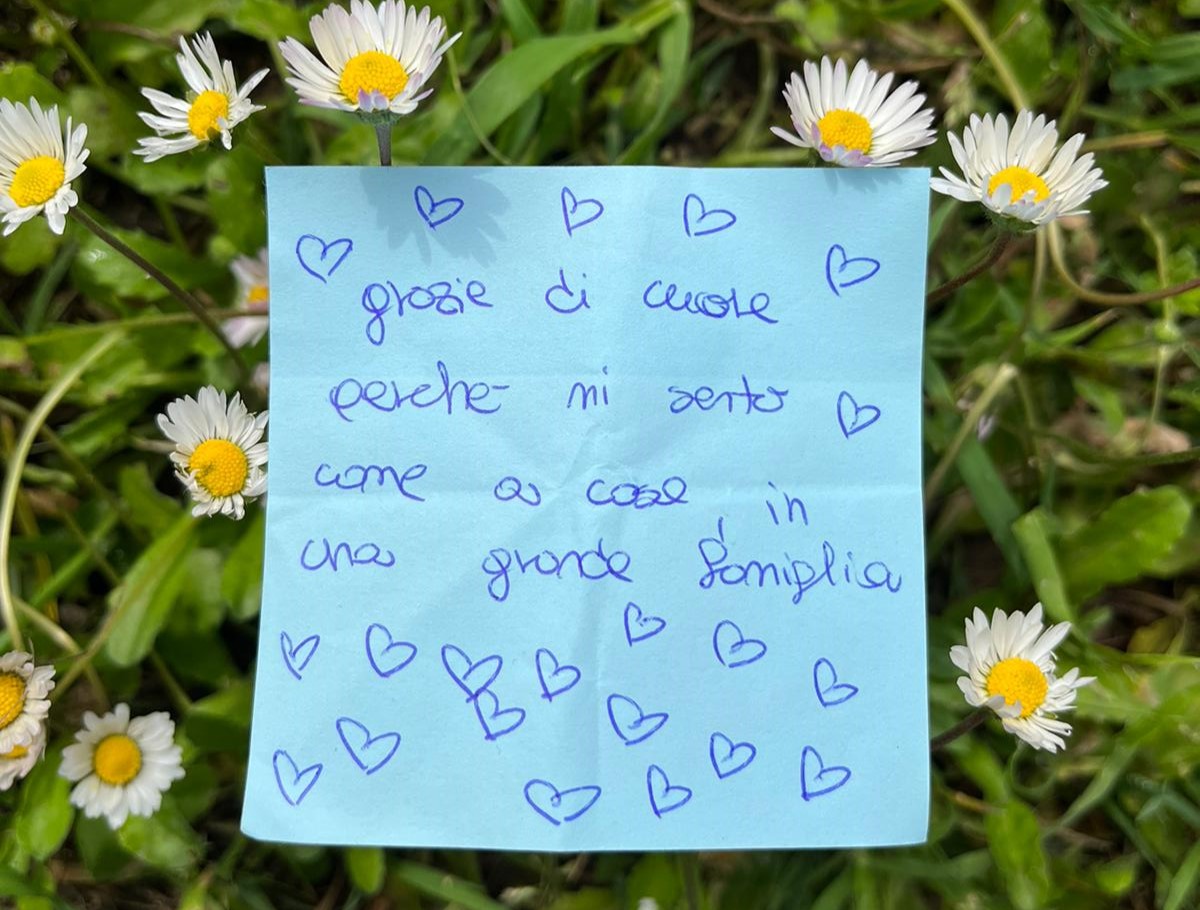 grazie di cuore
perche mi sento
come a casa, in
una grande famiglia